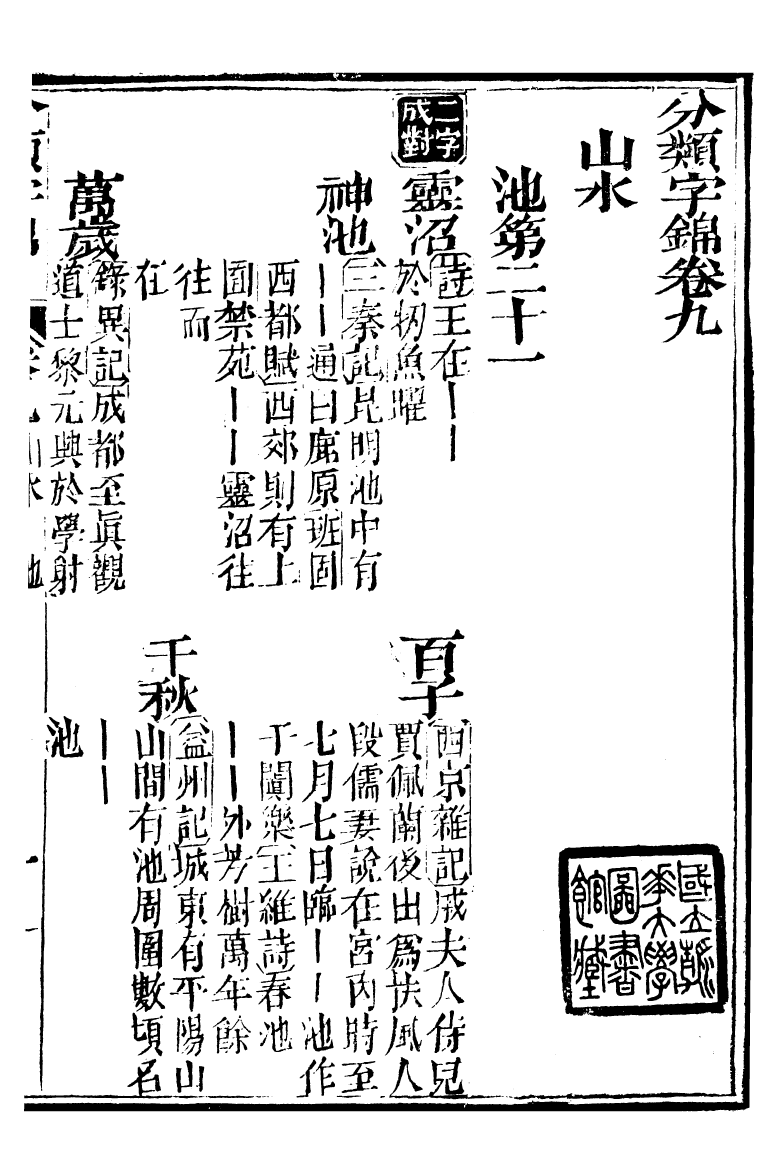 分類字錦卷九
山水
池第二十一
二字成對
靈沼
詩王在丨丨
於牣魚躍
百子
西京雜記戚夫人侍兒
賈佩蘭後出爲扶風人
段儒妻說在宮內時至
七月七日臨丨丨池作
于闐樂王維詩春池
丨丨外芳樹萬年餘
神池
三秦記昆明池中有
丨丨通白鹿原班固
西都賦西郊則有上
囿禁苑丨丨靈沼往
往而
在
千秋
益州記城東有平陽山
山間有池周圍數頃名
丨丨
池
萬歲
錄異記成都至眞觀
道士黎元興於學射
國立
華大學
圖書
館藏